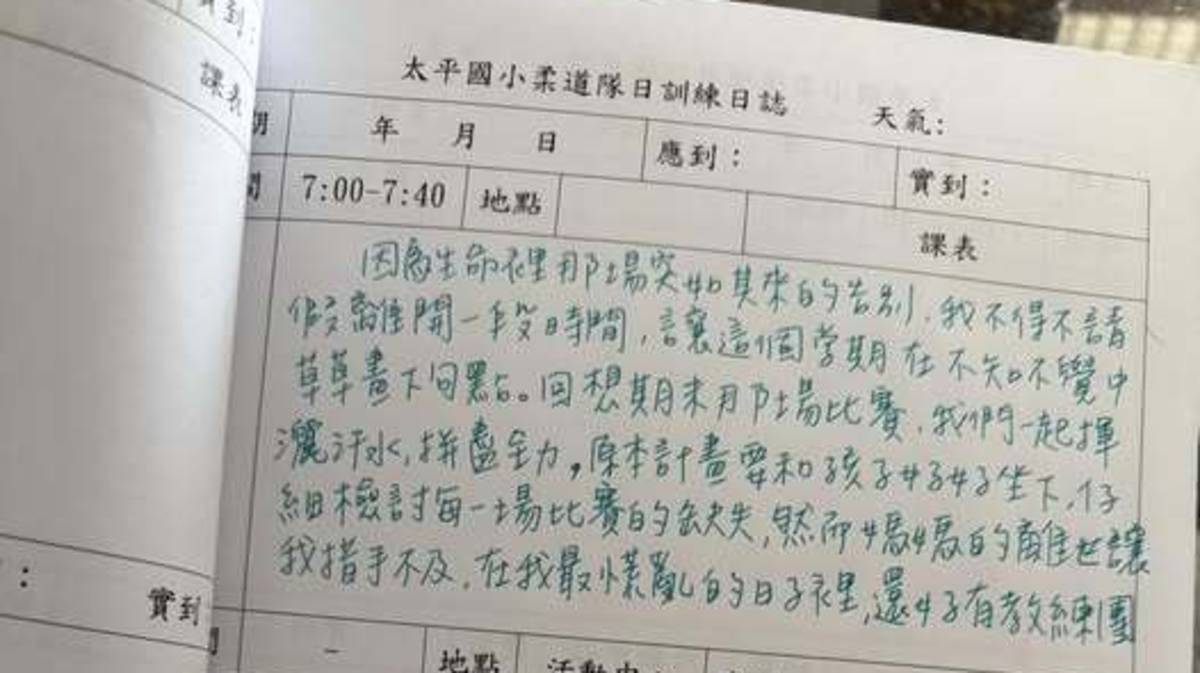 實到：
課表
太平國小柔道隊日訓練日誌 天氣:
期 年 月 日 應到： 實到：
間 7:00-7:40 地點
課表
因為生命裡那場突如其來的告別，我不得不請
假離開一段時間，讓這個學期在不知不覺中
草草畫下句點。回想期末那場比賽，我們一起揮
灑汗水，拼盡全力，原本計畫要和孩子好好坐下，仔
細檢討每一場比賽的缺失，然而媽媽的離世讓
我措手不及，在我最慌亂的日子裡，還好有教練團
： 實到
間 - 地點 活動中